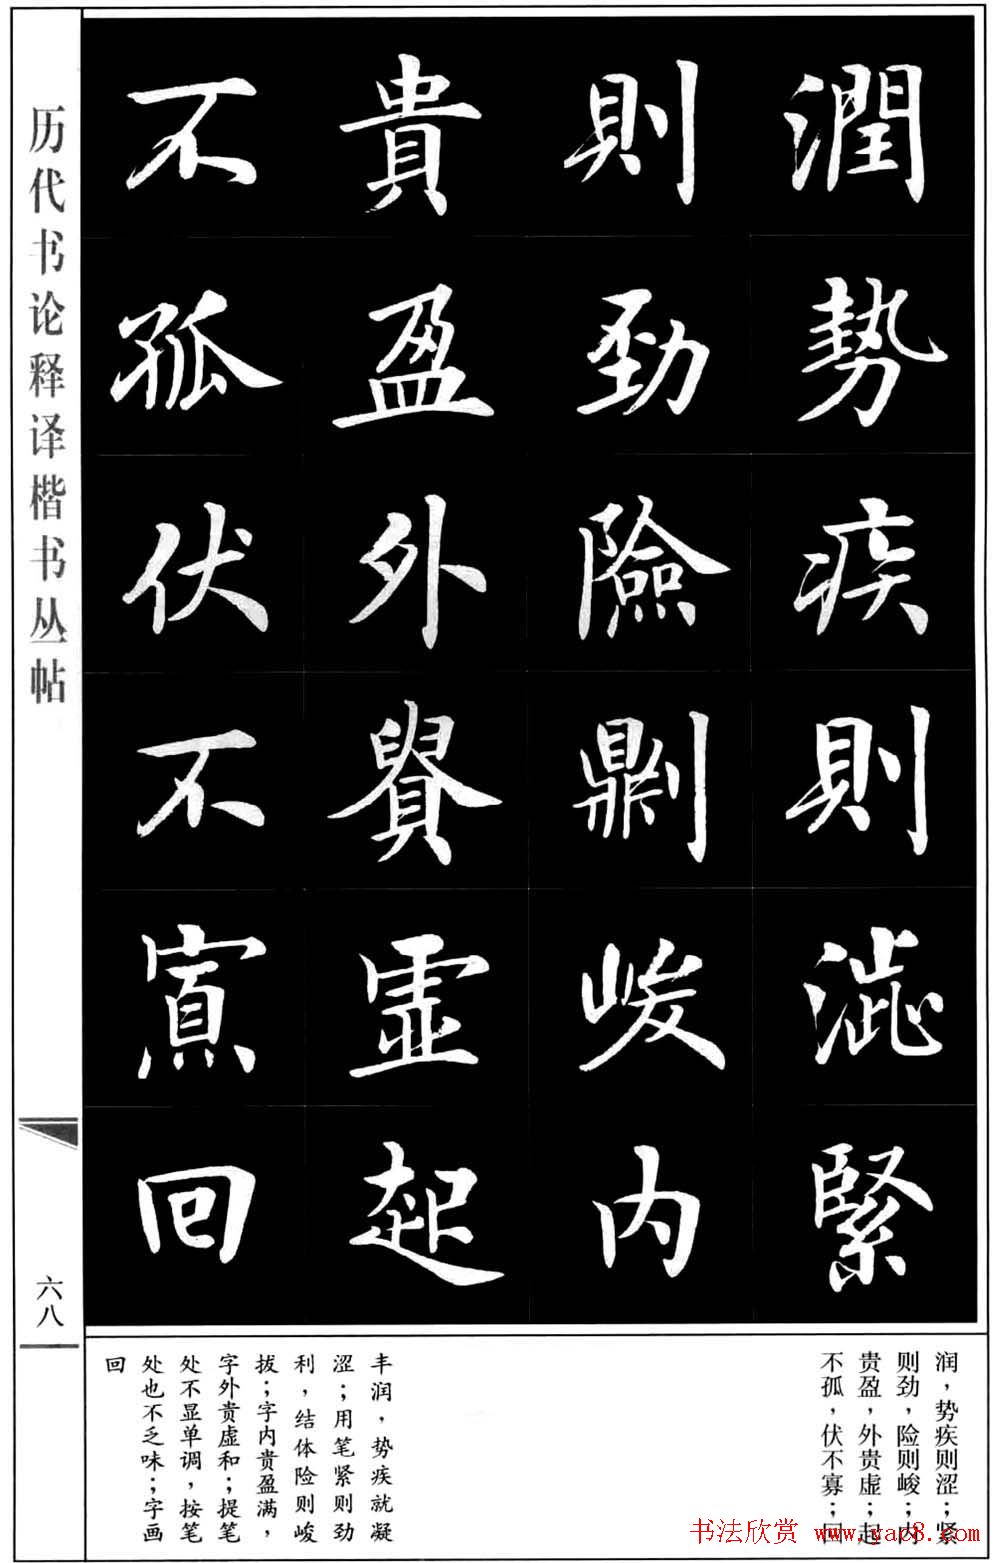 潤勢疾則澁緊
則勁險劓峻內
貴盈外貴虛起
不孤伏不寡回
润，势疾则涩；紧
则劲，险则峻；内
贵盈，外贵虚；起
不孤，伏不寡；回
丰润，势疾就凝
涩；用笔紧则劲
利，结体险则峻
拔；字内贵盈满，
字外贵虚和；提笔
处不显单调，按笔
处也不乏味；字画
回
历代书论释译楷书丛帖
六八
书法欣赏 www.yac8.com